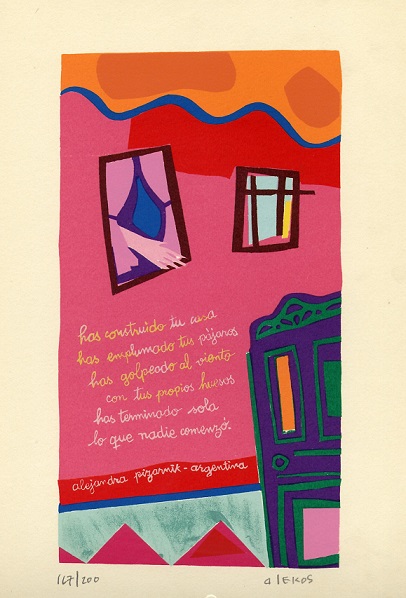 has construido tu casa
has emplumado tus pájaros
has golpeado al viento
con tus propios huesos
has terminado sola
lo que nadie comenzó.
alejandra pizarnik - argentina
167/200 alEKOS